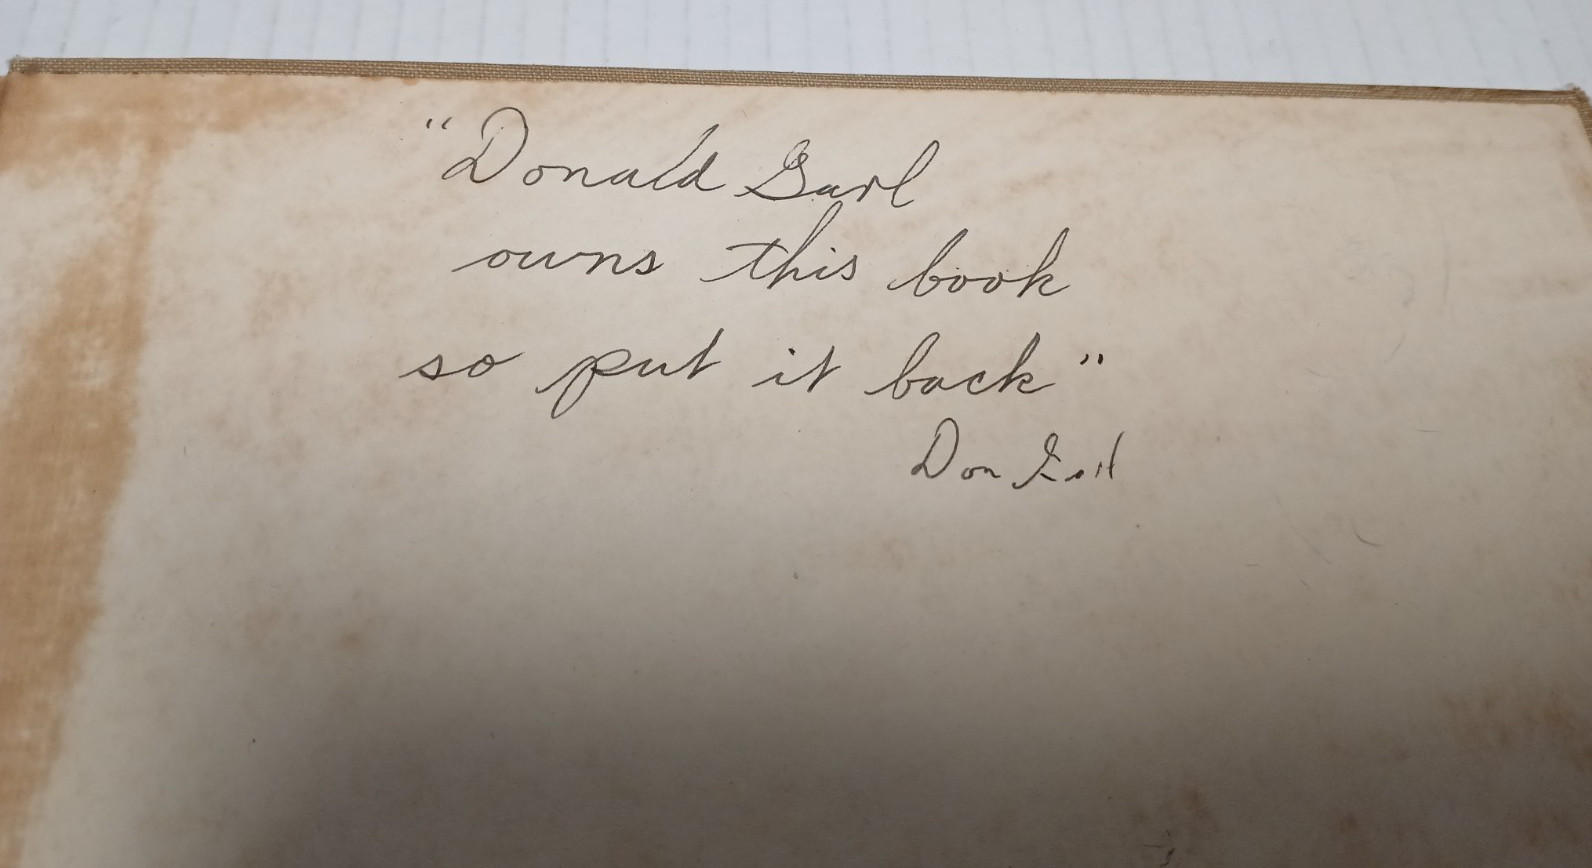 "Donald Garl
owns this book
so put it back"
Don